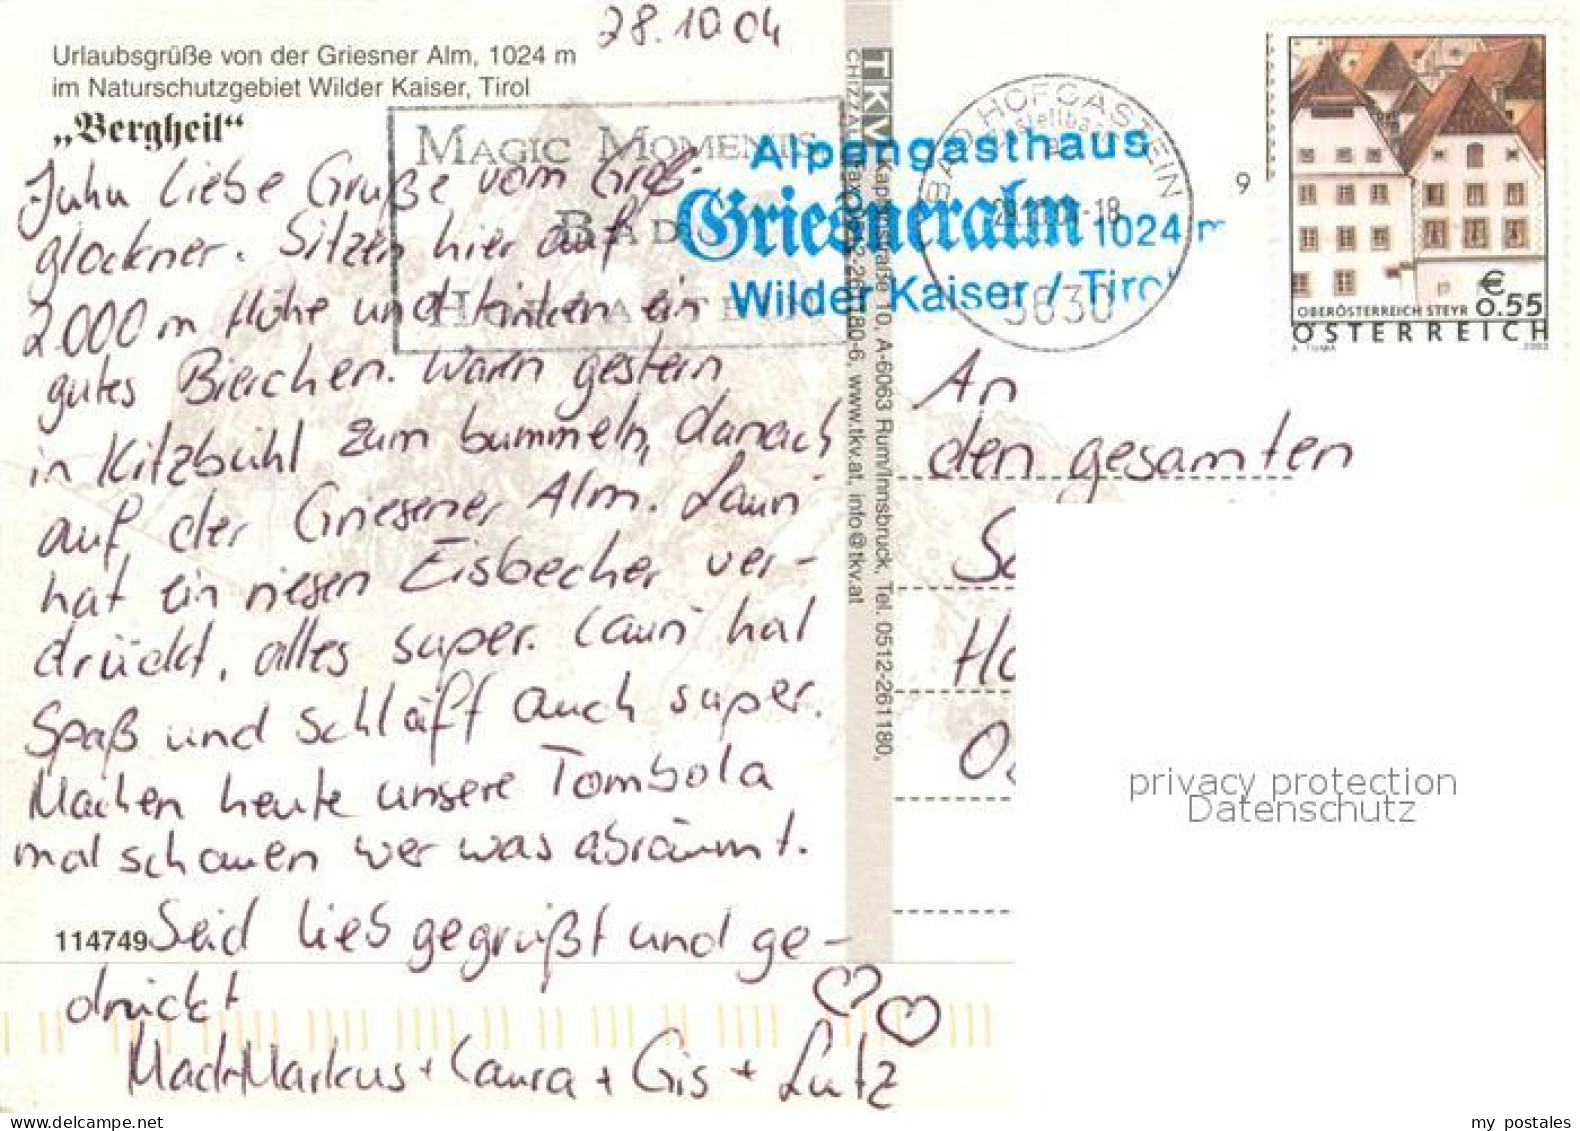 28.10.04
Urlaubsgrüße von der Griesner Alm, 1024 m
im Naturschutzgebiet Wilder Kaiser, Tirol
„Bergheil“
Juhu liebe Grüße vom Groß-
glockner. Sitzen hier auf
2000 m Höhe und trinken ein
gutes Bierchen. Warn gestern
in Kitzbühl zum bummeln, danach
auf der Griesener Alm. Lauri
hat ein riesen Eisbecher ver-
drückt, alles super. Lauri hat
Spaß und schläft auch super.
Machen heute unsere Tombola
mal schauen wer was abräumt.
Seid lieb gegrüßt und ge-
drückt
Markus + Laura + Gis + Lutz
114749
MAGIC MOMENTS
BAD
Alpengasthaus
Griesneralm 1024 m
Wilder Kaiser / Tirol
BAD HOFGASTEIN
5630
TKV
Rum/Innsbruck, Tel. 0512-261180,
www.tkv.at, info@tkv.at
9
€
0.55
OBERÖSTERREICH STEYR
ÖSTERREICH
An
den gesamten
privacy protection
Datenschutz
www.delcampe.net
my_postales